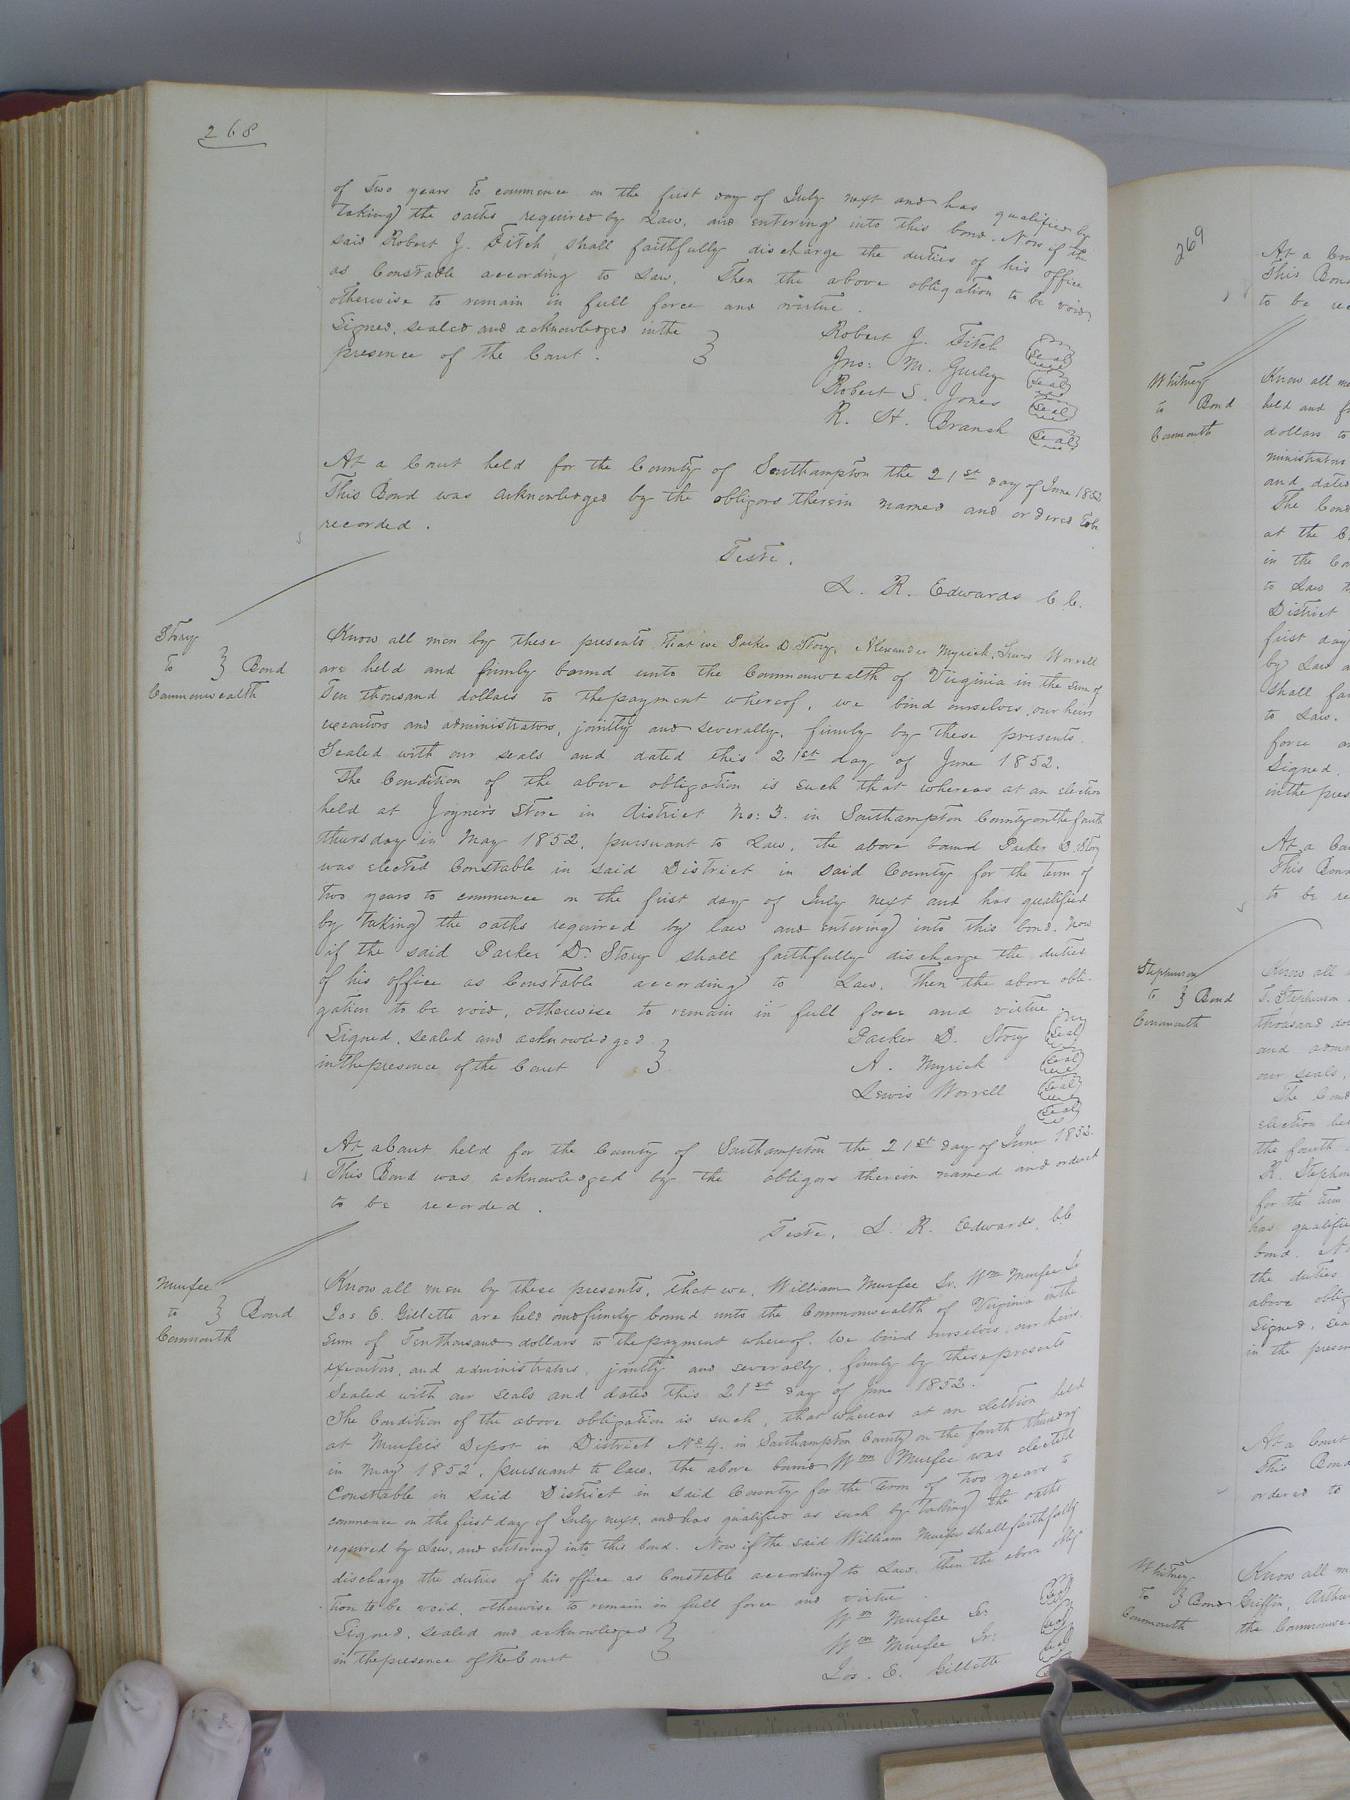 268
of Two years to commence on the first day of July next and has qualified by
taking the oaths required by Law, and entering into this bond. Now if the
said Robert J. Fitch, shall faithfully discharge the duties of his office
as Constable according to Law, Then the above obligation to be void,
otherwise to remain in full force and virtue.
Signed, sealed and acknowledged in the
presence of the Court.
Robert J. Fitch Seal
Jno: M. Gurley Seal
Robert S. Jones Seal
R. H. Branch Seal
At a Court held for the County of Southampton the 21st day of June 1852
This Bond was acknowledged by the obligors therein named and ordered to be
recorded.
Teste.
L. R. Edwards C. C.
Story
to } Bond
Commonwealth
Know all men by these presents that we Parker D Story, Alexander Myrick, Lewis Worrell
are held and firmly bound unto the Commonwealth of Virginia in the sum of
Ten thousand dollars to the payment whereof, we bind ourselves, our heirs
executors and administrators, jointly and severally, firmly by these presents.
Sealed with our seals and dated this 21st day of June 1852.
The Condition of the above obligation is such that whereas at an election
held at Joyner's Store in district No: 3. in Southampton County on the fourth
thursday in May 1852, pursuant to Law, the above bound Parker D. Story
was elected Constable in said District in said County for the term of
two years to commence on the first day of July next and has qualified
by taking the oaths required by law and entering into this bond. Now
if the said Parker D. Story shall faithfully discharge the duties
of his office as Constable according to Law, Then the above obli-
gation to be void, otherwise to remain in full force and virtue.
Signed, sealed and acknowledged
in the presence of the Court
Parker D. Story Seal
A. Myrick Seal
Lewis Worrell Seal
Seal
At a Court held for the County of Southampton the 21st day of June 1852.
This Bond was acknowledged by the obligors therein named and ordered
to be recorded.
Teste, L. R. Edwards, C.C
Murfee
to } Bond
Commonth
Know all men by these presents, that we, William Murfee Sr. Wm Murfee Jr
Jos E. Gillette are held and firmly bound unto the Commonwealth of Virginia in the
sum of Ten thousand dollars to the payment whereof. We bind ourselves, our heirs.
executors, and administrators, jointly and severally, firmly by these presents
Sealed with our seals and dated this 21st day of June 1852.
The Condition of the above obligation is such, that whereas at an election held
at Murfee's Depot in District No 4. in Southampton County on the fourth thursday
in May 1852, pursuant to law, the above bound Wm Murfee was elected
Constable in said District in said County for the term of two years to
commence on the first day of July next, and has qualified as such by taking the oaths
required by Law, and entering into this bond. Now if the said William Murfee shall faithfully
discharge the duties of his office as Constable according to Law, then the above oblig-
tion to be void, otherwise to remain in full force and virtue.
Signed, sealed and acknowledged
in the presence of the Court
Wm Murfee Sr Seal
Wm Murfee Jr: Seal
Jos. E. Gillette Seal
269
At a Cou
This Bon
to be re
Whitney
to Bond
Commonth
Know all me
held and f
dollars to
ministrators
and dated
The Cond
at the C
in the Co
to Law t
District
first day
by Law a
shall fai
to Law.
force an
Signed.
in the pres
At a Cou
This Bon
to be re
Stephenson
to } Bond
Commonth
Know all
T. Stephenson
thousand do
and admi
our seals,
The Cond
election he
the fourth
R. Stephen
for the term
has qualifie
bond. No
the duties
above oblig
Signed, sea
in the presen
At a Court
This Bond
ordered to
Whitney
to } Bond
Commonth
Know all m
Griffin, Arthu
the Commonwe